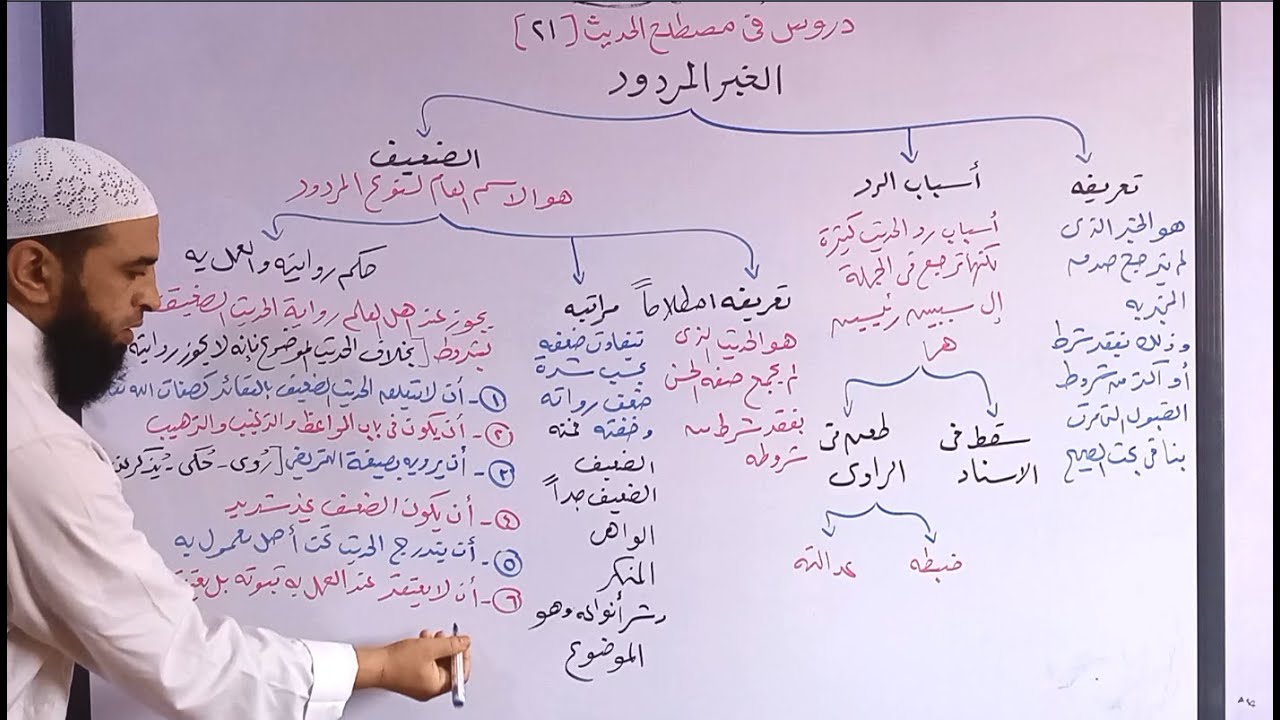 دروس في مصطلح الحديث [٢١]
الخبر المردود
تعريفه
هو الخبر الذي
لم يترجح صدق
المخبر به
وذلك بفقد شرط
أو أكثر من شروط
القبول التي مرت
بنا في بحث الصحيح
أسباب الرد
أسباب رد الحديث كثيرة
لكنها ترجع في الجملة
إلى سببين رئيسين
هما
سقط في
الاسناد
طعن في
الراوي
ضبطه
عدالته
الضعيف
هو الاسم العام لنوع المردود
تعريفه اصطلاحاً
هو الحديث الذي
لم يجمع صفة الحسن
بفقد شرط من
شروطه
مراتبه
تتفاوت ضعفه
بحسب شدة
ضعف رواته
وخفته فمنه
الضعيف
الضعيف جداً
الواهي
المنكر
وشر أنواعه وهو
الموضوع
حكم روايته والعمل به
يجوز عند أهل العلم رواية الحديث الضعيف
بشروط [بخلاف الحديث الموضوع فإنه لا يجوز روايته
١- أن لا يتعلق الحديث الضعيف بالعقائد كصفات الله
٢- أن يكون في باب المواعظ والترغيب والترهيب
٣- أن يرويه بصيغة التمريض [رُوي - حُكي - يُذكر
٤- أن يكون الضعف غير شديد
٥- أن يندرج الحديث تحت أصل معمول به
٦- أن لا يعتقد عند العمل به ثبوته بل